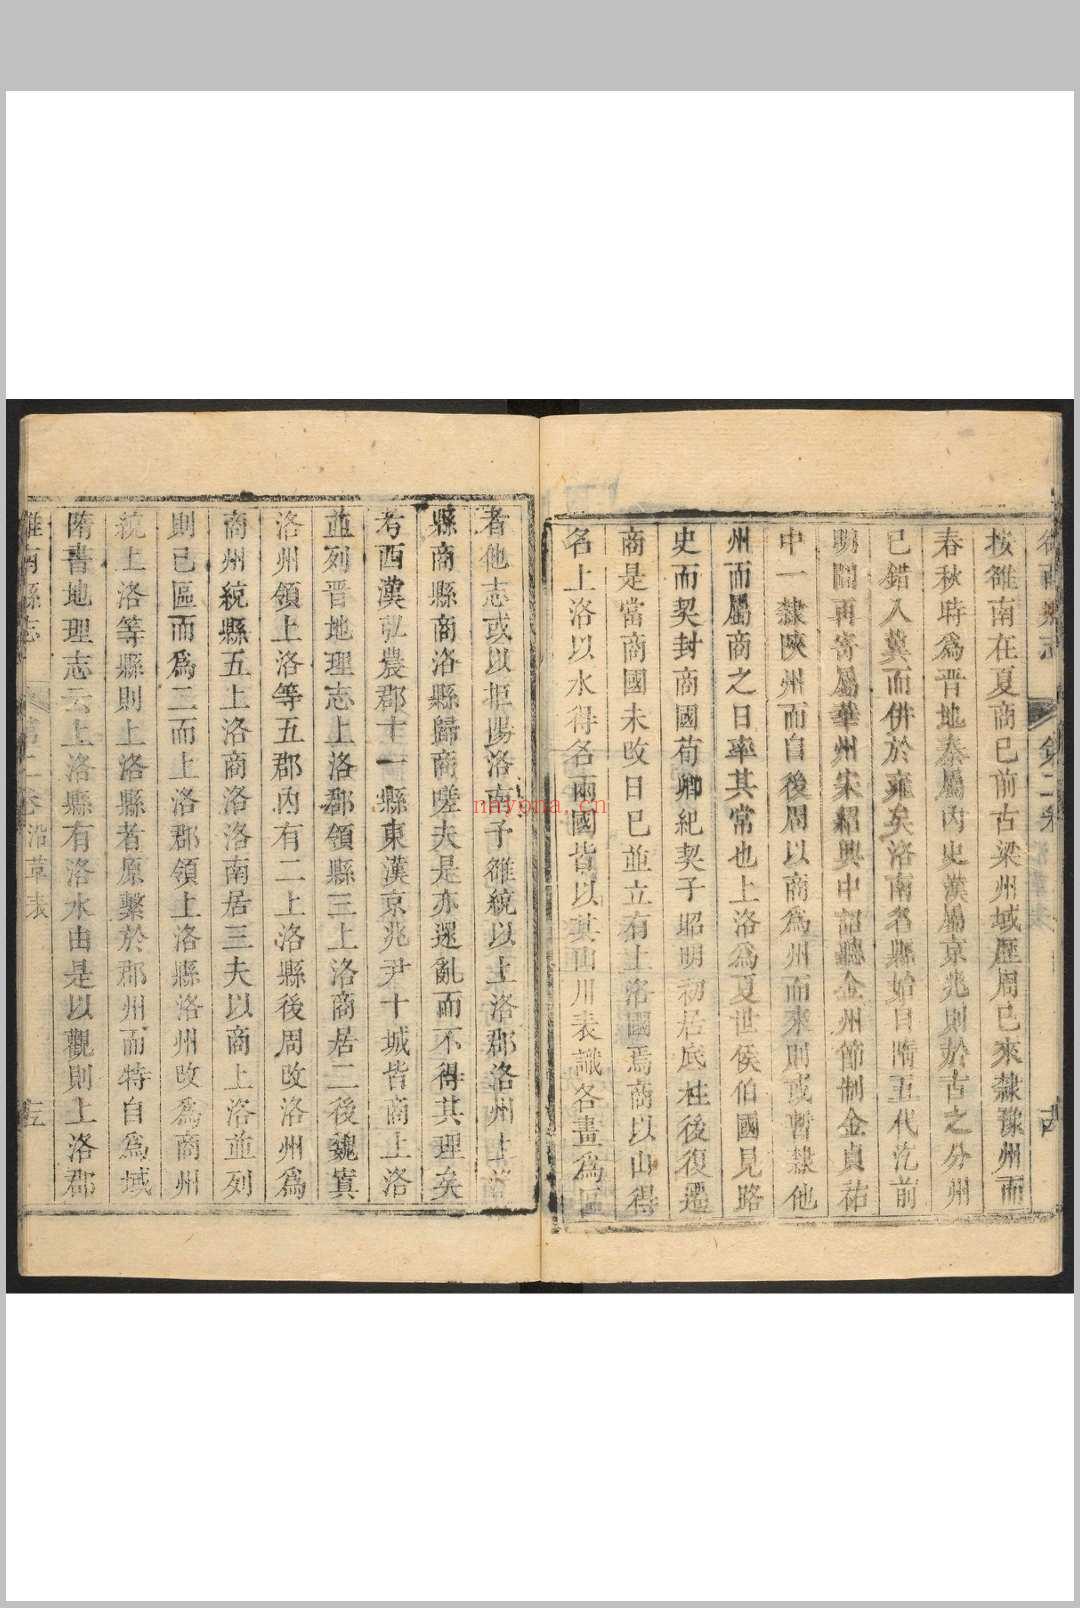 雒南縣志 第二卷 古
按雒南在夏商已前古梁州域歷周已來隸豫州而
春秋時為晉地秦屬內史漢屬京兆則於古之分州
已錯入冀而併於雍矣洛南名縣始自隋五代迄前
明間再寄屬華州宋紹興中詔聽金州節制金貞祐
中一隸陝州而自後周以商為州而來則或暫隸他
州而屬商之日率其常也上洛為夏世侯伯國見路
史而契封商國荀卿紀契子昭明初居底柱後復遷
商是當商國未改日已並立有上洛國焉商以山得
名上洛以水得名兩國皆以其山川表識各畫為區
者他志或以拒陽洛南予雒統以上洛郡洛州上洛
縣商縣商洛縣歸商嗟夫是亦遝亂而不得其理矣
考西漢弘農郡十一縣東漢京兆尹十城皆商上洛
並列晉地理志上洛郡領縣三上洛商居二後魏寘
洛州領上洛等五郡內有二上洛縣後周改洛州為
商州統縣五上洛商洛洛南居三夫以商上洛並列
則已區而為二而上洛郡領上洛縣洛州改為商州
統上洛等縣則上洛縣者原繫於郡州而特自為域
隋書地理志云上洛縣有洛水由是以觀則上洛郡
雒南縣志 第二卷 沿革表
nayona.cn